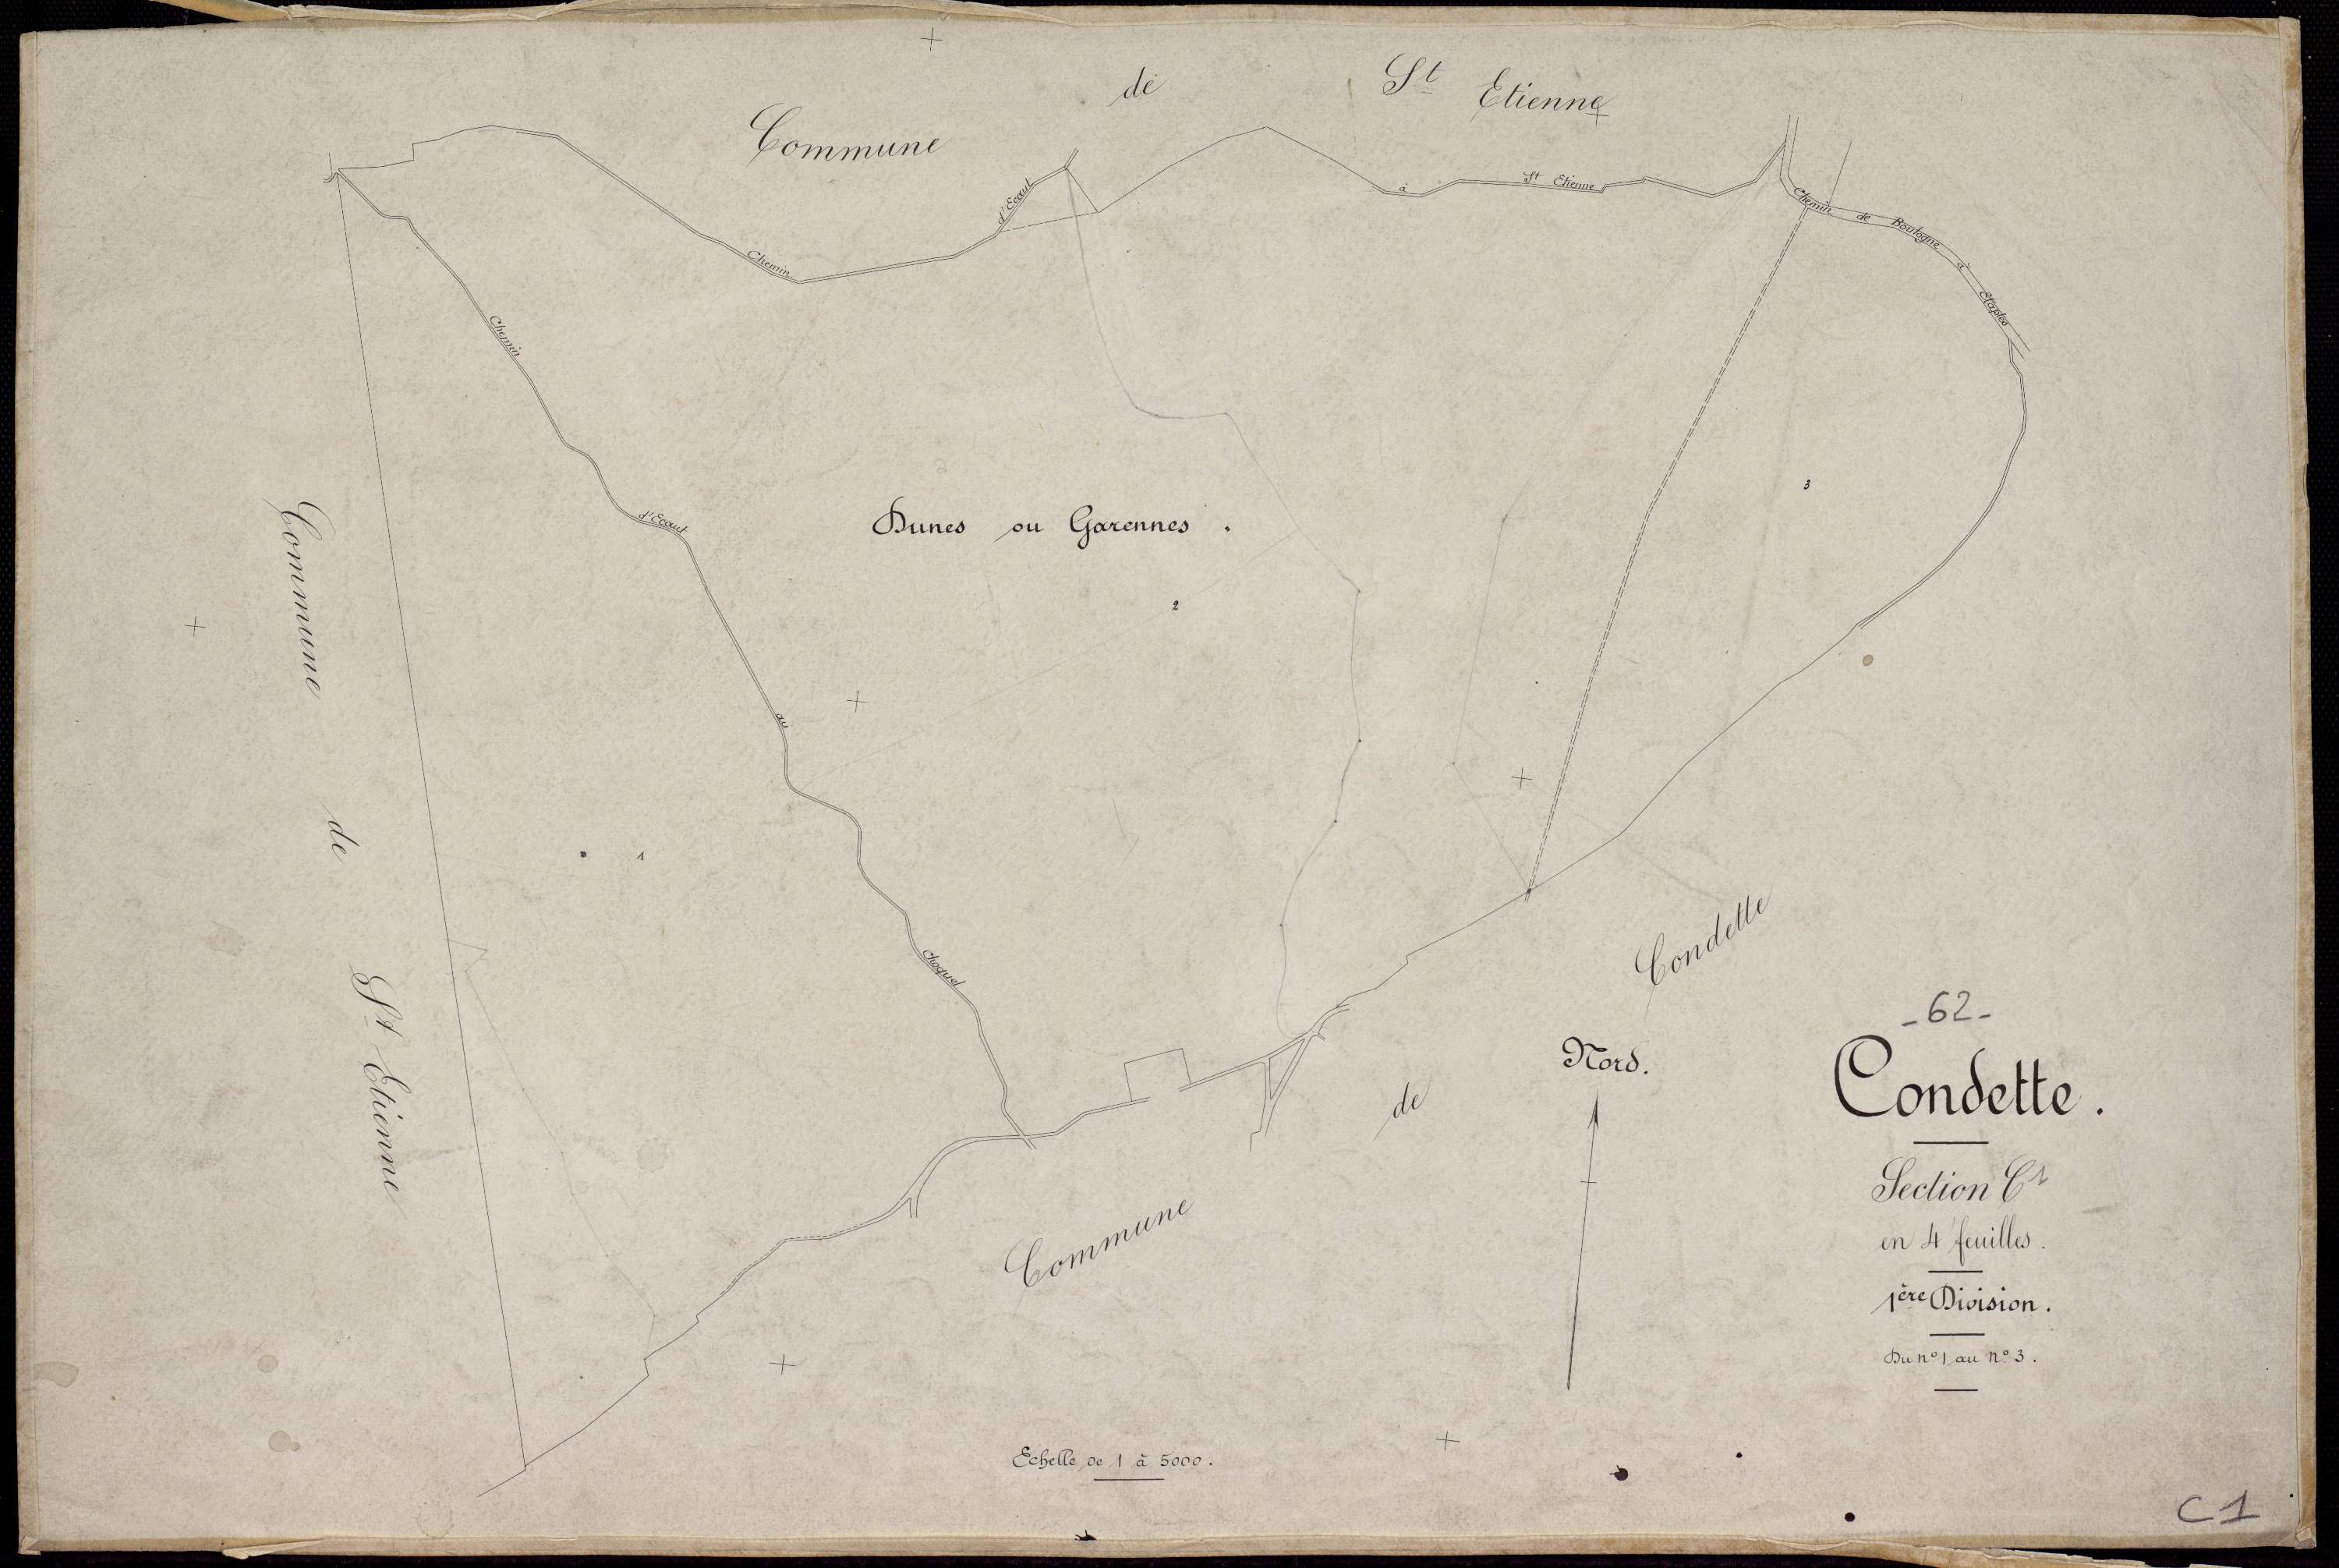 Commune de St Etienne
Chemin d'Ecaut à St Etienne
Chemin de Boulogne à Etaples
Chemin d'Ecaut au Choquel
Commune de St Etienne
Dunes ou Garennes.
3
2
1
Commune de Condette
Nord.
-62-
Condette.
Section C1
en 4 feuilles.
1ère Division.
Du no 1 au no 3.
Echelle de 1 à 5000.
C1